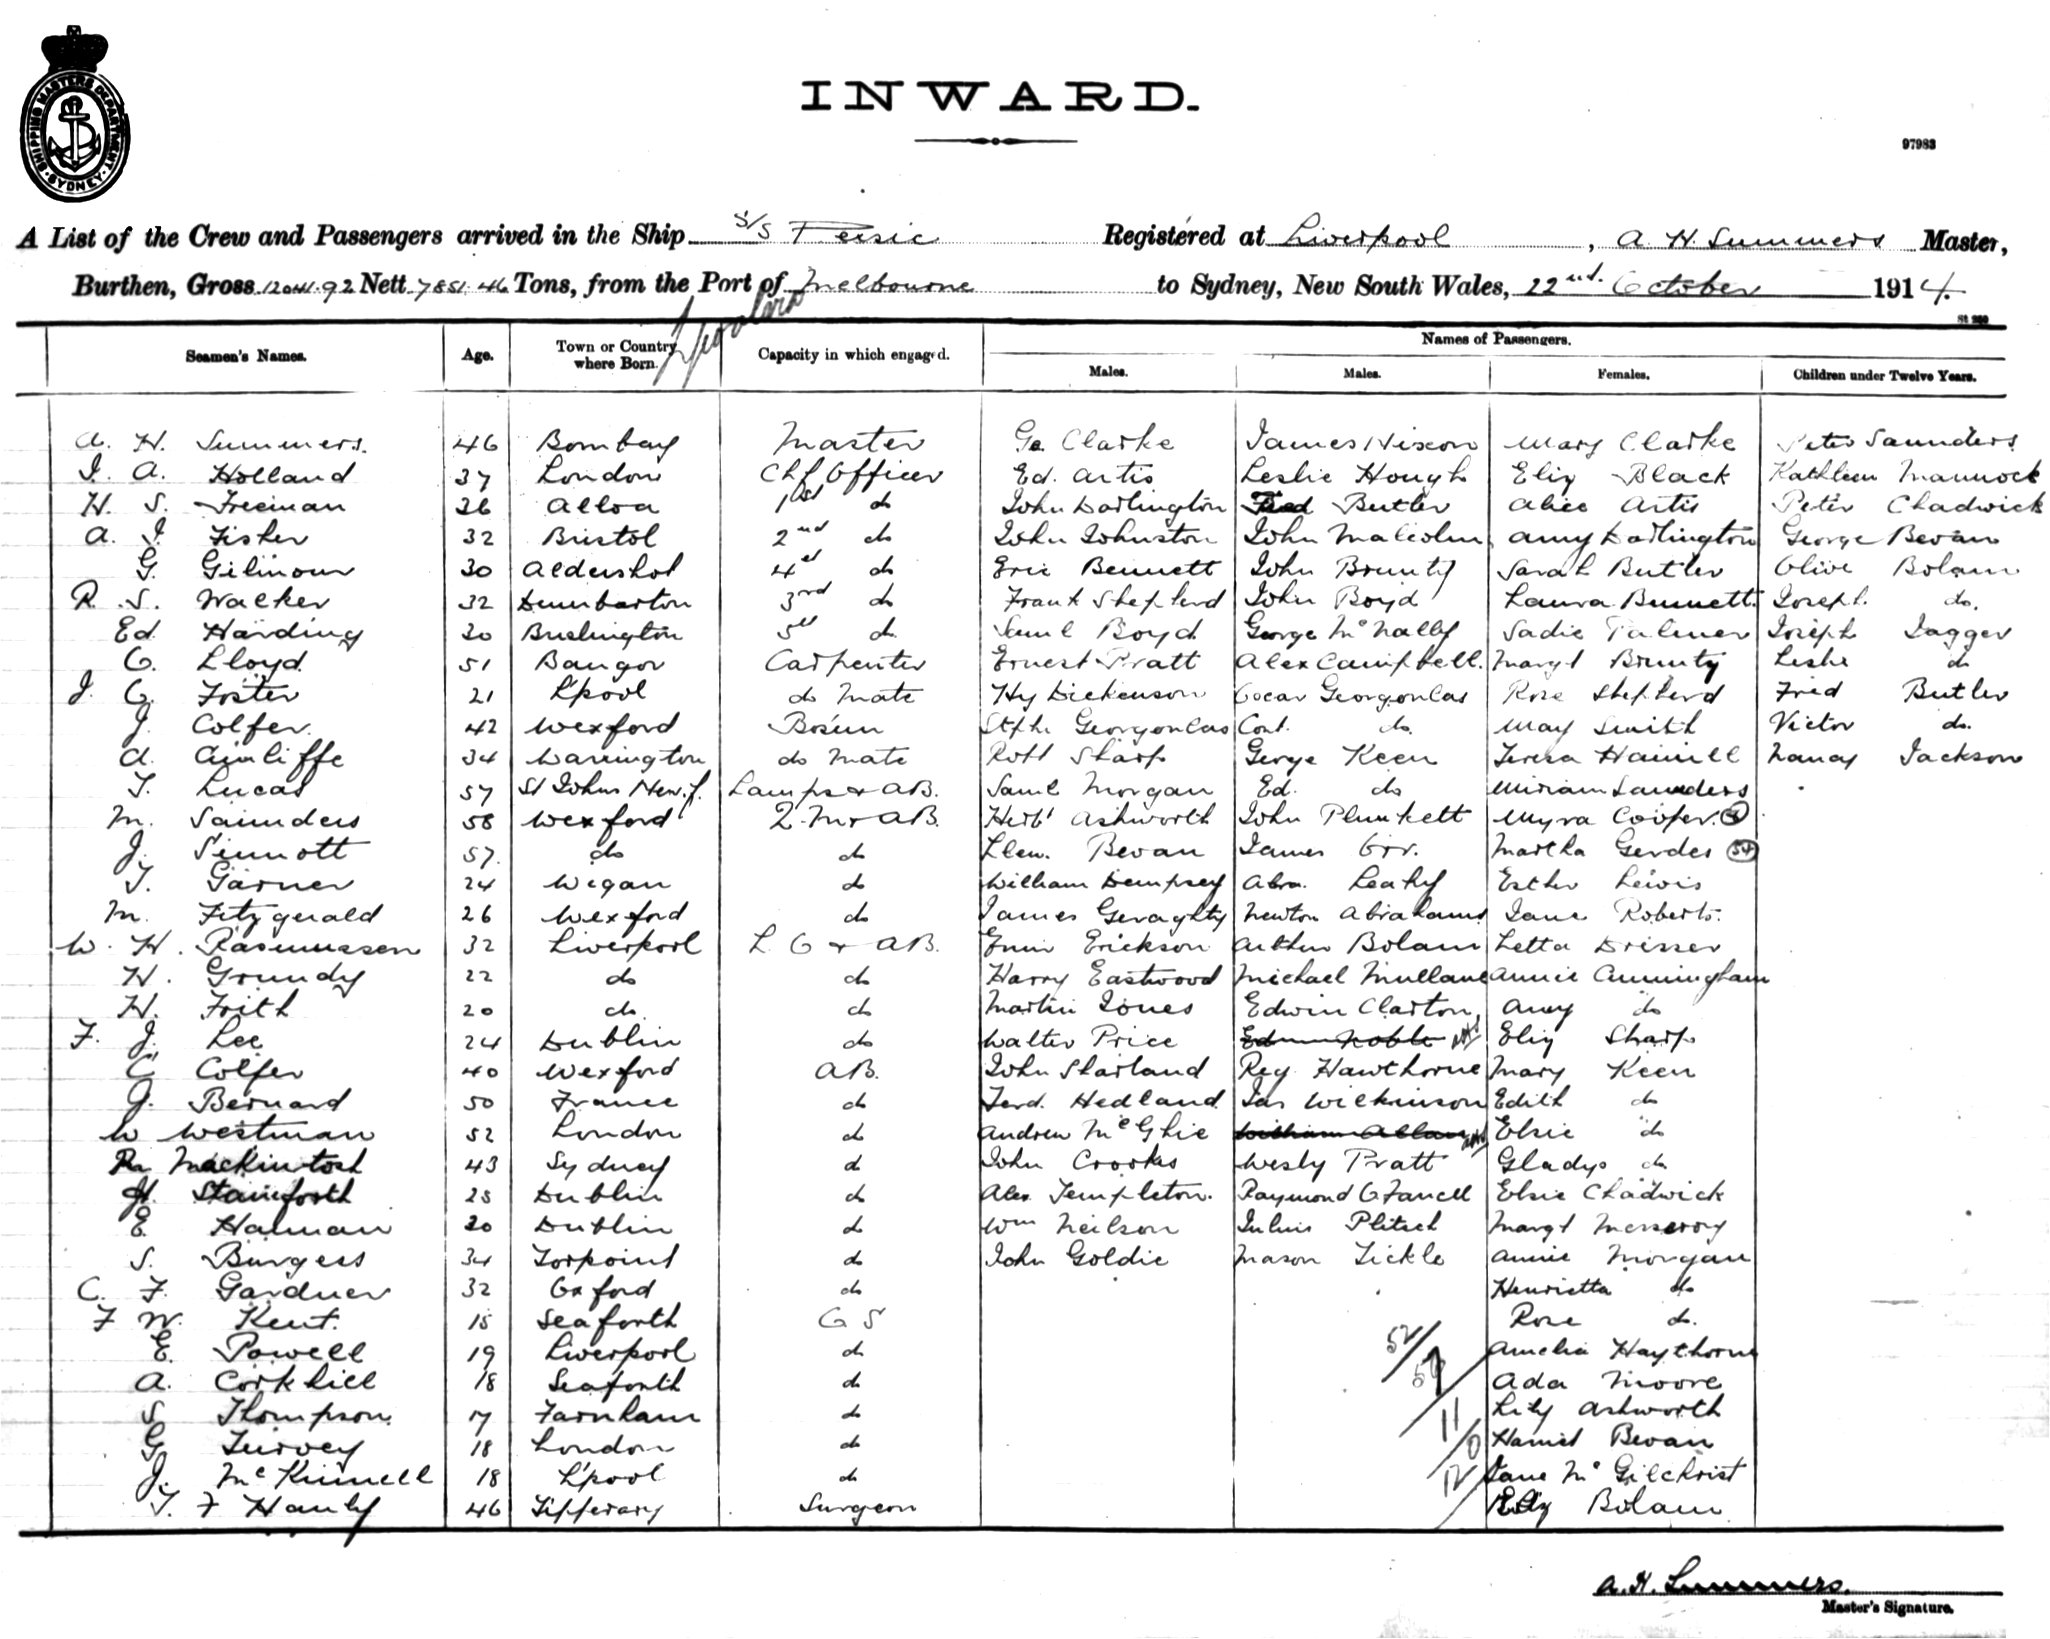 SHIPPING MASTERS DEPARTMENT
SYDNEY
INWARD.
97983
A List of the Crew and Passengers arrived in the Ship S/S Persic Registered at Liverpool, A H Summers Master,
Burthen, Gross 12041.92 Nett 7851.46 Tons, from the Port of Melbourne to Sydney, New South Wales, 22nd. October 1914.
Seamen's Names. Age. Town or Country where Born. Capacity in which engaged. Names of Passengers.
Males. Males. Females. Children under Twelve Years.
A. H. Summers. 46 Bombay Master Ge. Clarke James Nixon Mary Clarke Peter Saunders
J. A. Holland 37 London Chf Officer Ed. Artis Leslie Hough Eliz Black Kathleen Mannock
H. S. Freeman 36 Alloa 1st do John Darlington Fred Butler Alice Artis Peter Chadwick
A. J. Fisher 32 Bristol 2nd do John Johnston John Malcolm Amy Darlington George Bevan
G. Gilmour 30 Aldershot 4th do Eric Bennett John Brunty Sarah Butler Olive Bolam
R. S. Walker 32 Dumbarton 3rd do Frank Shepherd John Boyd Laura Bennett Joseph do.
Ed. Harding 30 do Saml Boyd George McNally Sadie Palmer Joseph Jagger
C. Lloyd 51 Bangor Carpenter Ernest Pratt Alex Campbell. Margt Brunty Leslie do
J. C. Foster 21 L'pool do Mate Hy Dickenson Oscar Georgonlas Rose Shepherd Fred Butler
J. Colfer. 42 Wexford Bosun Stphe Georgonlas Cont. do. May Smith Victor do.
A. Aincliffe 34 Warrington do Mate Robt Sharp George Keen Teresa Hamill Nancy Jackson
T. Lucas 57 St Johns New.f. Lamps & AB. Saml Morgan Ed. do Miriam Saunders
M. Saunders 58 Wexford Q.M & AB. Herbt Ashworth John Plunkett Myra Cooper.
J. Sinnott 57. do do Llew. Bevan James Orr. Martha Gerdes
T. Garner 24 Wigan do William Dempsey Abra. Leahy Esther Lewis
M. Fitzgerald 26 Wexford do James Geraghty Newton Abrahams Jane Roberts.
W. H. Rasmussen 32 Liverpool L O & AB. Erickson Arthur Bolam Letta Drisser
H. Grundy 22 do do Harry Eastwood Michael Mullane Annie Cunningham
H. Frith 20 do. do Martin Jones Edwin Clarton, Amy do
F. J. Lee 24 Dublin do Walter Price Edwin Noble Eliz Sharp
C. Colfer 40 Wexford AB. John Sharland Reg Hawthorne Mary Keen
J. Bernard 50 France do Ferd. Hedland Jas Wilkinson Edith do
W Westman 52 London do Andrew McGhie William Allan Elsie do
R. Mackintosh 43 Sydney do John Crooks Wesly Pratt Gladys do
H. Staniforth 25 Dublin do Alex Templeton. Raymond O Farrell Elsie Chadwick
E. Halman 30 Dublin do Wm Neilson Julius Plitsch Margt
S. Burgess 34 Torpoint do John Goldie Mason Tickle Annie Morgan
C. F. Gardner 32 Oxford do Henrietta do
F W. Kent. 15 Seaforth O S Rose do.
E. Powell 19 Liverpool do Amelia Haythorne
A. Corkhill 18 Seaforth do Ada Moore
S. Thompson. 17 Farnham do Lily Ashworth
G. Turvey 18 London do Harriet Bevan
J. McKinnell 18 L'pool do Jane McGilchrist
T. F Hanly 46 Tipperary Surgeon Eliz Bolam
A. H. Summers.
Master's Signature.